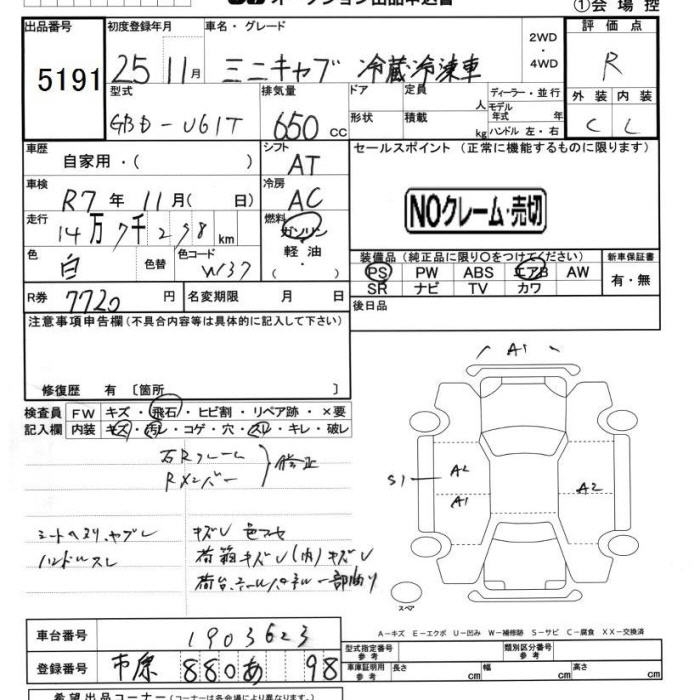 オークション出品申込書
①会場控
出品番号
5191
初度登録年月
25 11月
車名・グレード
ミニキャブ 冷蔵冷凍車
2WD・4WD
評価点
R
外装 内装
C C
型式
GBD-U61T
排気量
650 cc
ドア
形状
定員
人
積載
kg
ディーラー・並行
モデル年式 年
ハンドル 左・右
車歴
自家用・( )
シフト
AT
車検
R7年 11月( 日)
冷房
AC
走行
14万7千298km
燃料
ガソリン
軽油
色
白
色替
色コード
W37
R券
7720円
名変期限 月 日
セールスポイント (正常に機能するものに限ります)
NOクレーム・売切
装備品 (純正品に限り○をつけてください)
PS PW ABS エアB AW
SR ナビ TV カワ
新車保証書
有・無
後日品
注意事項申告欄 (不具合内容等は具体的に記入して下さい)
修復歴 有 〔箇所 〕
検査員記入欄
FW キズ・飛石・ヒビ割・リペア跡・×要
内装 キズ・汚レ・コゲ・穴・スレ・キレ・破レ
右Rフレーム
Rメンバー
修正
シートヘタリ、ヤブレ
ハンドルスレ
キズU 色アセ
荷箱キズU(内)キズU
荷台、テールパネル一部曲り
A1
S1
A2
A1
A2
スペア
A-キズ E-エクボ U-凹み W-補修跡 S-サビ C-腐食 XX-交換済
車台番号
1903623
登録番号
市原 880 あ 98
型式指定番号 参考
類別区分番号 参考
車庫証明用 参考
長さ cm 幅 cm 高さ cm
希望出品コーナー (コーナーは各会場により異なります)